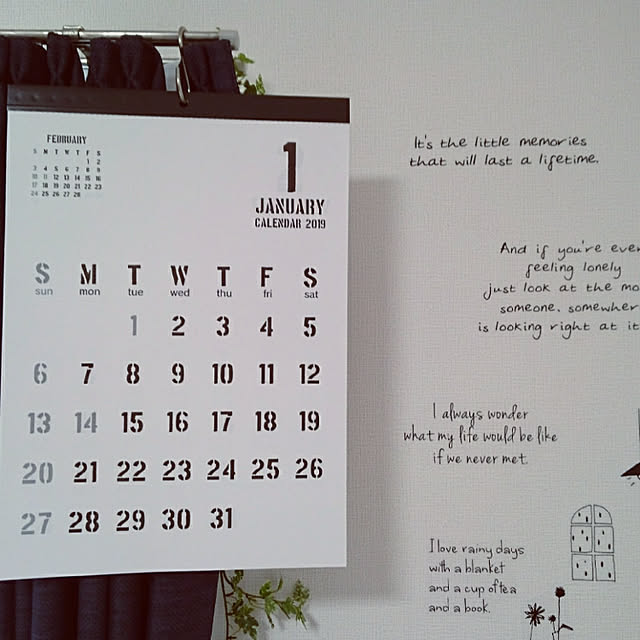 FEBRUARY
S M T W T F S
1 2
3 4 5 6 7 8 9
10 11 12 13 14 15 16
17 18 19 20 21 22 23
24 25 26 27 28
1
JANUARY
CALENDAR 2019
S M T W T F S
sun mon tue wed thu fri sat
1 2 3 4 5
6 7 8 9 10 11 12
13 14 15 16 17 18 19
20 21 22 23 24 25 26
27 28 29 30 31
It's the little memories
that will last a lifetime.
And if you're ever
feeling lonely
just look at the
someone. somewher
is looking right at it
I always wonder
what my life would be like
if we never met.
I love rainy days
with a blanket
and a cup of tea
and a book.